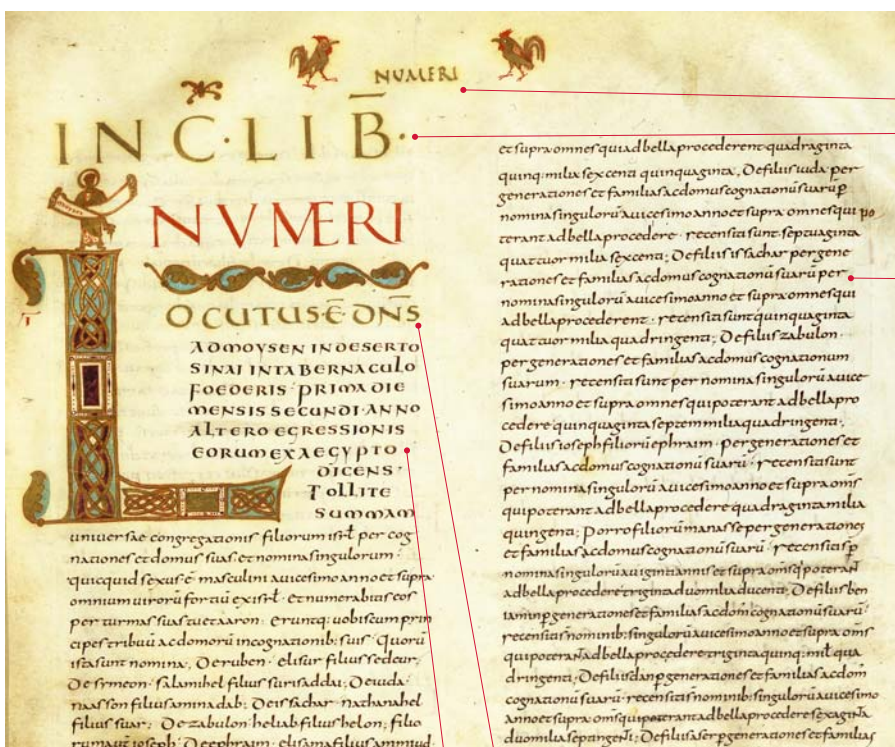 NUMERI
INC̅·LIB̅·
NVMERI
LOCUTUS·E̅·DN̅S
AD MOYSEN IN DESERTO
SINAI IN TABERNACULO
FOEDERIS· PRIMA DIE
MENSIS SECUNDI· ANNO
ALTERO EGRESSIONIS
EORUM EX AEGYPTO
DICENS·
TOLLITE
SUMMAM
universae congregationis filiorum isrł per cog
nationes et domus suas et nomina singulorum·
quicquid sexus ē masculini a vicesimo anno et supra
omnium virorū fortiū ex isrł· Et numerabitis eos
per turmas suas tu et aaron· eruntq: vobiscum prin
cipes tribuū ac domorū in cognationib: suis· Quorū
ista sunt nomina; De ruben· elisur filius sedeur;
De symeon· salamihel filius surisaddai; De iuda·
naasson filius aminadab; De issachar· nathanahel
filius suar; De zabulon· heliab filius helon; filio
rum aut̄ ioseph; De ephraim· elisama filius ammiud·
et supra omnes qui ad bella procederent quadraginta
quinq: milia sexcenti quinquaginta; De filiis iuda per
generationes et familias ac domus cognationū suarū p̱
nomina singulorū a vicesimo anno et supra omnes qui po
terant ad bella procedere· recensiti sunt septuaginta
quattuor milia sexcenti; De filiis issachar per gene
rationes et familias ac domus cognationū suarū per
nomina singulorū a vicesimo anno et supra omnes qui
ad bella procederent· recensiti sunt quinquaginta
quattuor milia quadringenti; De filiis zabulon·
per generationes et familias ac domus cognationum
suarum· recensiti sunt per nomina singulorū a vice
simo anno et supra omnes qui poterant ad bella pro
cedere quinquaginta septem milia quadringenti;
De filiis ioseph filiorū ephraim· per generationes et
familias ac domus cognationū suarū· recensiti sunt
per nomina singulorū a vicesimo anno et supra om̄s
qui poterant ad bella procedere quadraginta milia
quingenti; Porro filiorū manasse per generationes
et familias ac domus cognationū suarū· recensiti s̄ p̱
nomina singulorū a viginti annis et supra om̄s q̇ poterant
ad bella procedere triginta duo milia ducenti; De filiis ben
iamin p̱ generationes et familias ac dom̄ cognationū suarū·
recensiti s̄ nominib: singulorū a vicesimo anno et supra om̄s
qui poterant ad bella procedere triginta quinq: mil̄ qua
dringenti; De filiis dan p̱ generationes et familias ac dom̄
cognationū suarū· recensiti s̄ nominib: singulorū a vicesimo
anno et supra om̄s qui poterant ad bella procedere sexaginta
duo milia septingenti; De filiis aser p̱ generationes et familias